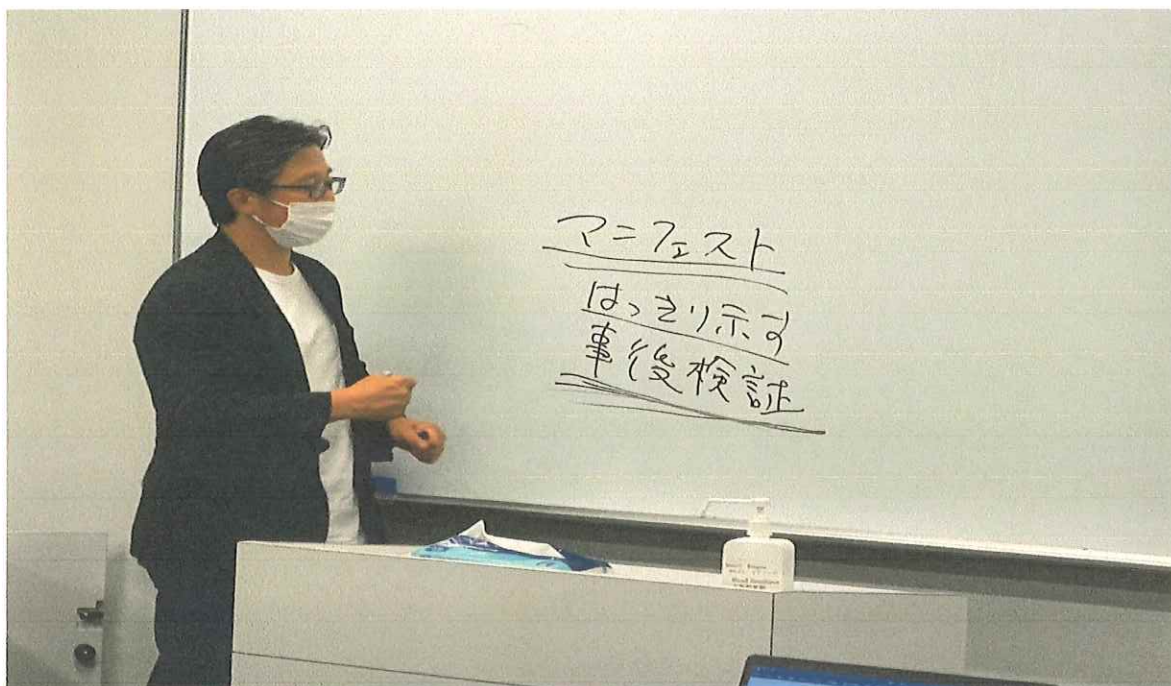 マニフェスト
はっきり示す
事後検証